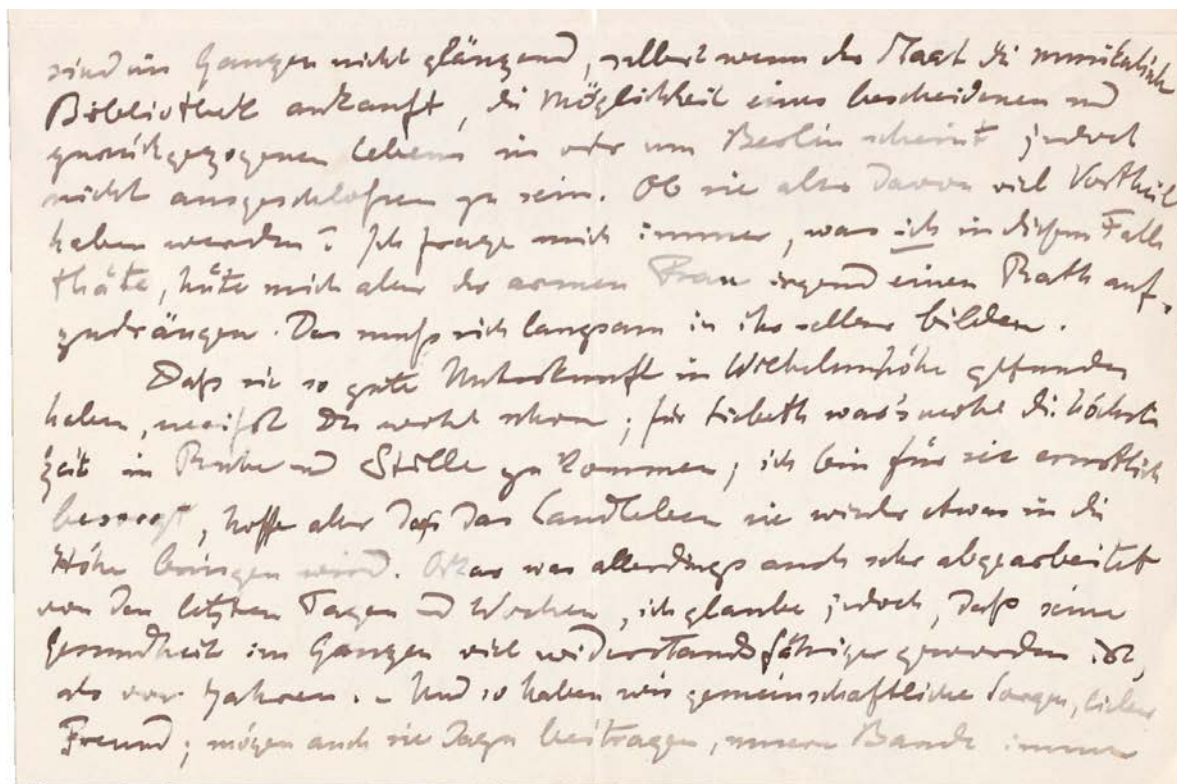 sind im Ganzen nicht glänzend, selbst wenn der Staat die musikalische
Bibliothek ankauft, die Möglichkeit eines bescheidenen und
zurückgezogenen Lebens in oder um Berlin scheint jedoch
nicht ausgeschloßen zu sein. Ob sie aber davon viel Vortheil
haben werden? Ich frage mich immer, was ich in diesem Falle
thäte, hüte mich aber der armen Frau irgend einen Rath auf-
zudrängen. Das muß sich langsam in ihr selber bilden.
Daß sie so gute Unterkunft in Wilhelmshöhe gefunden
haben, weißt Du wohl schon; für Lisbeth war's wohl die höchste
Zeit in Ruhe und Stille zu kommen; ich bin für sie ernstlich
besorgt, hoffe aber daß das Landleben sie wieder etwas in die
Höhe bringen wird. Oskar war allerdings auch sehr abgearbeitet
von den letzten Tagen und Wochen, ich glaube jedoch, daß seine
Gesundheit im Ganzen viel widerstandsfähiger geworden ist,
als vor Jahren. – Und so haben wir gemeinschaftliche Sorgen, lieber
Freund; mögen auch sie dazu beitragen, unsere Bande immer